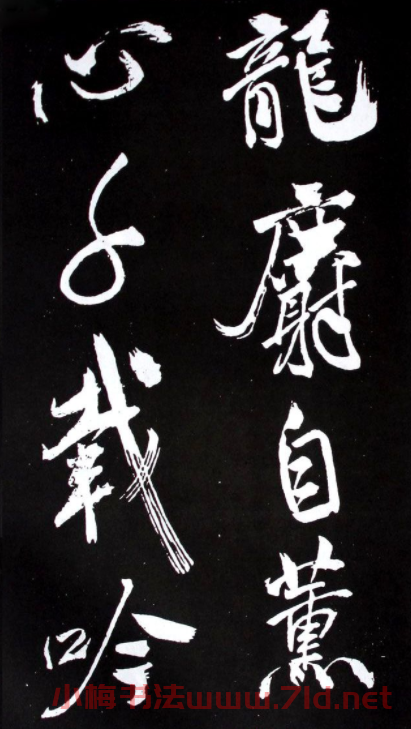 龍麝自薰
心千載吟
小梅书法www.7ld.net